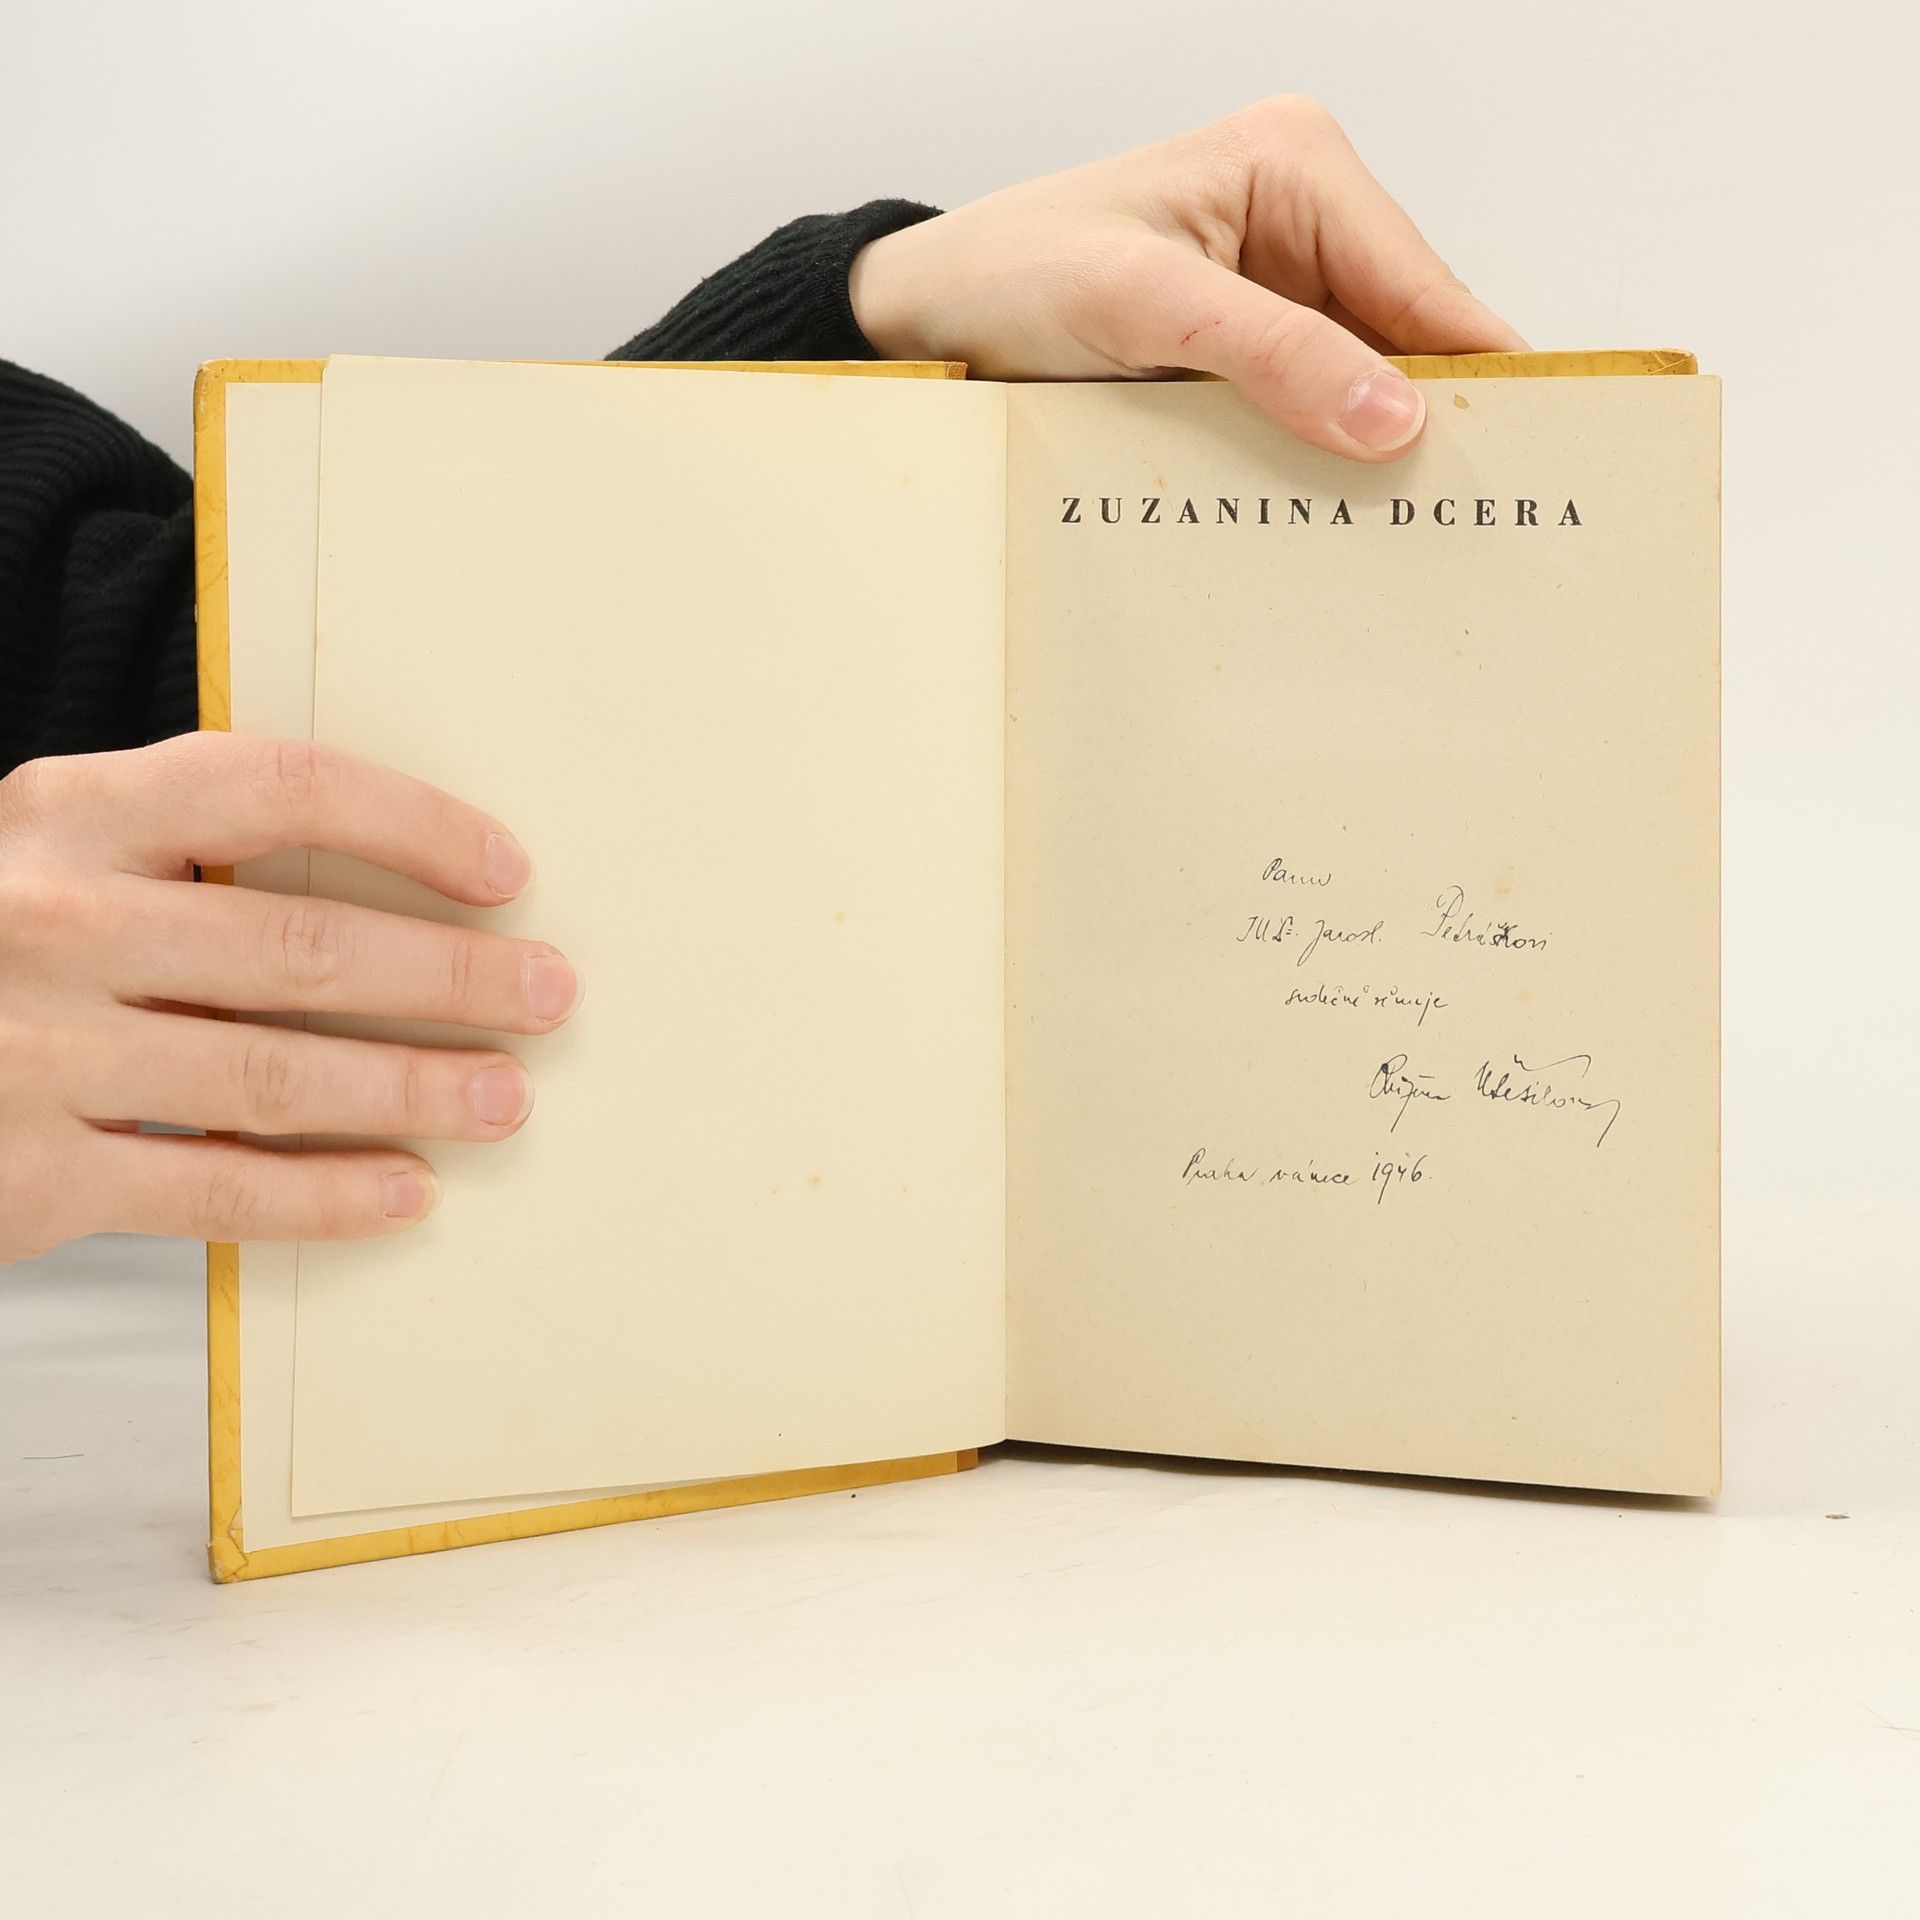 ZUZANINA DCERA
Panu
JUDr. Jarosl. Petráčkovi
srdečně věnuje
Božena Utěšilová
Praha, vánoce 1946.